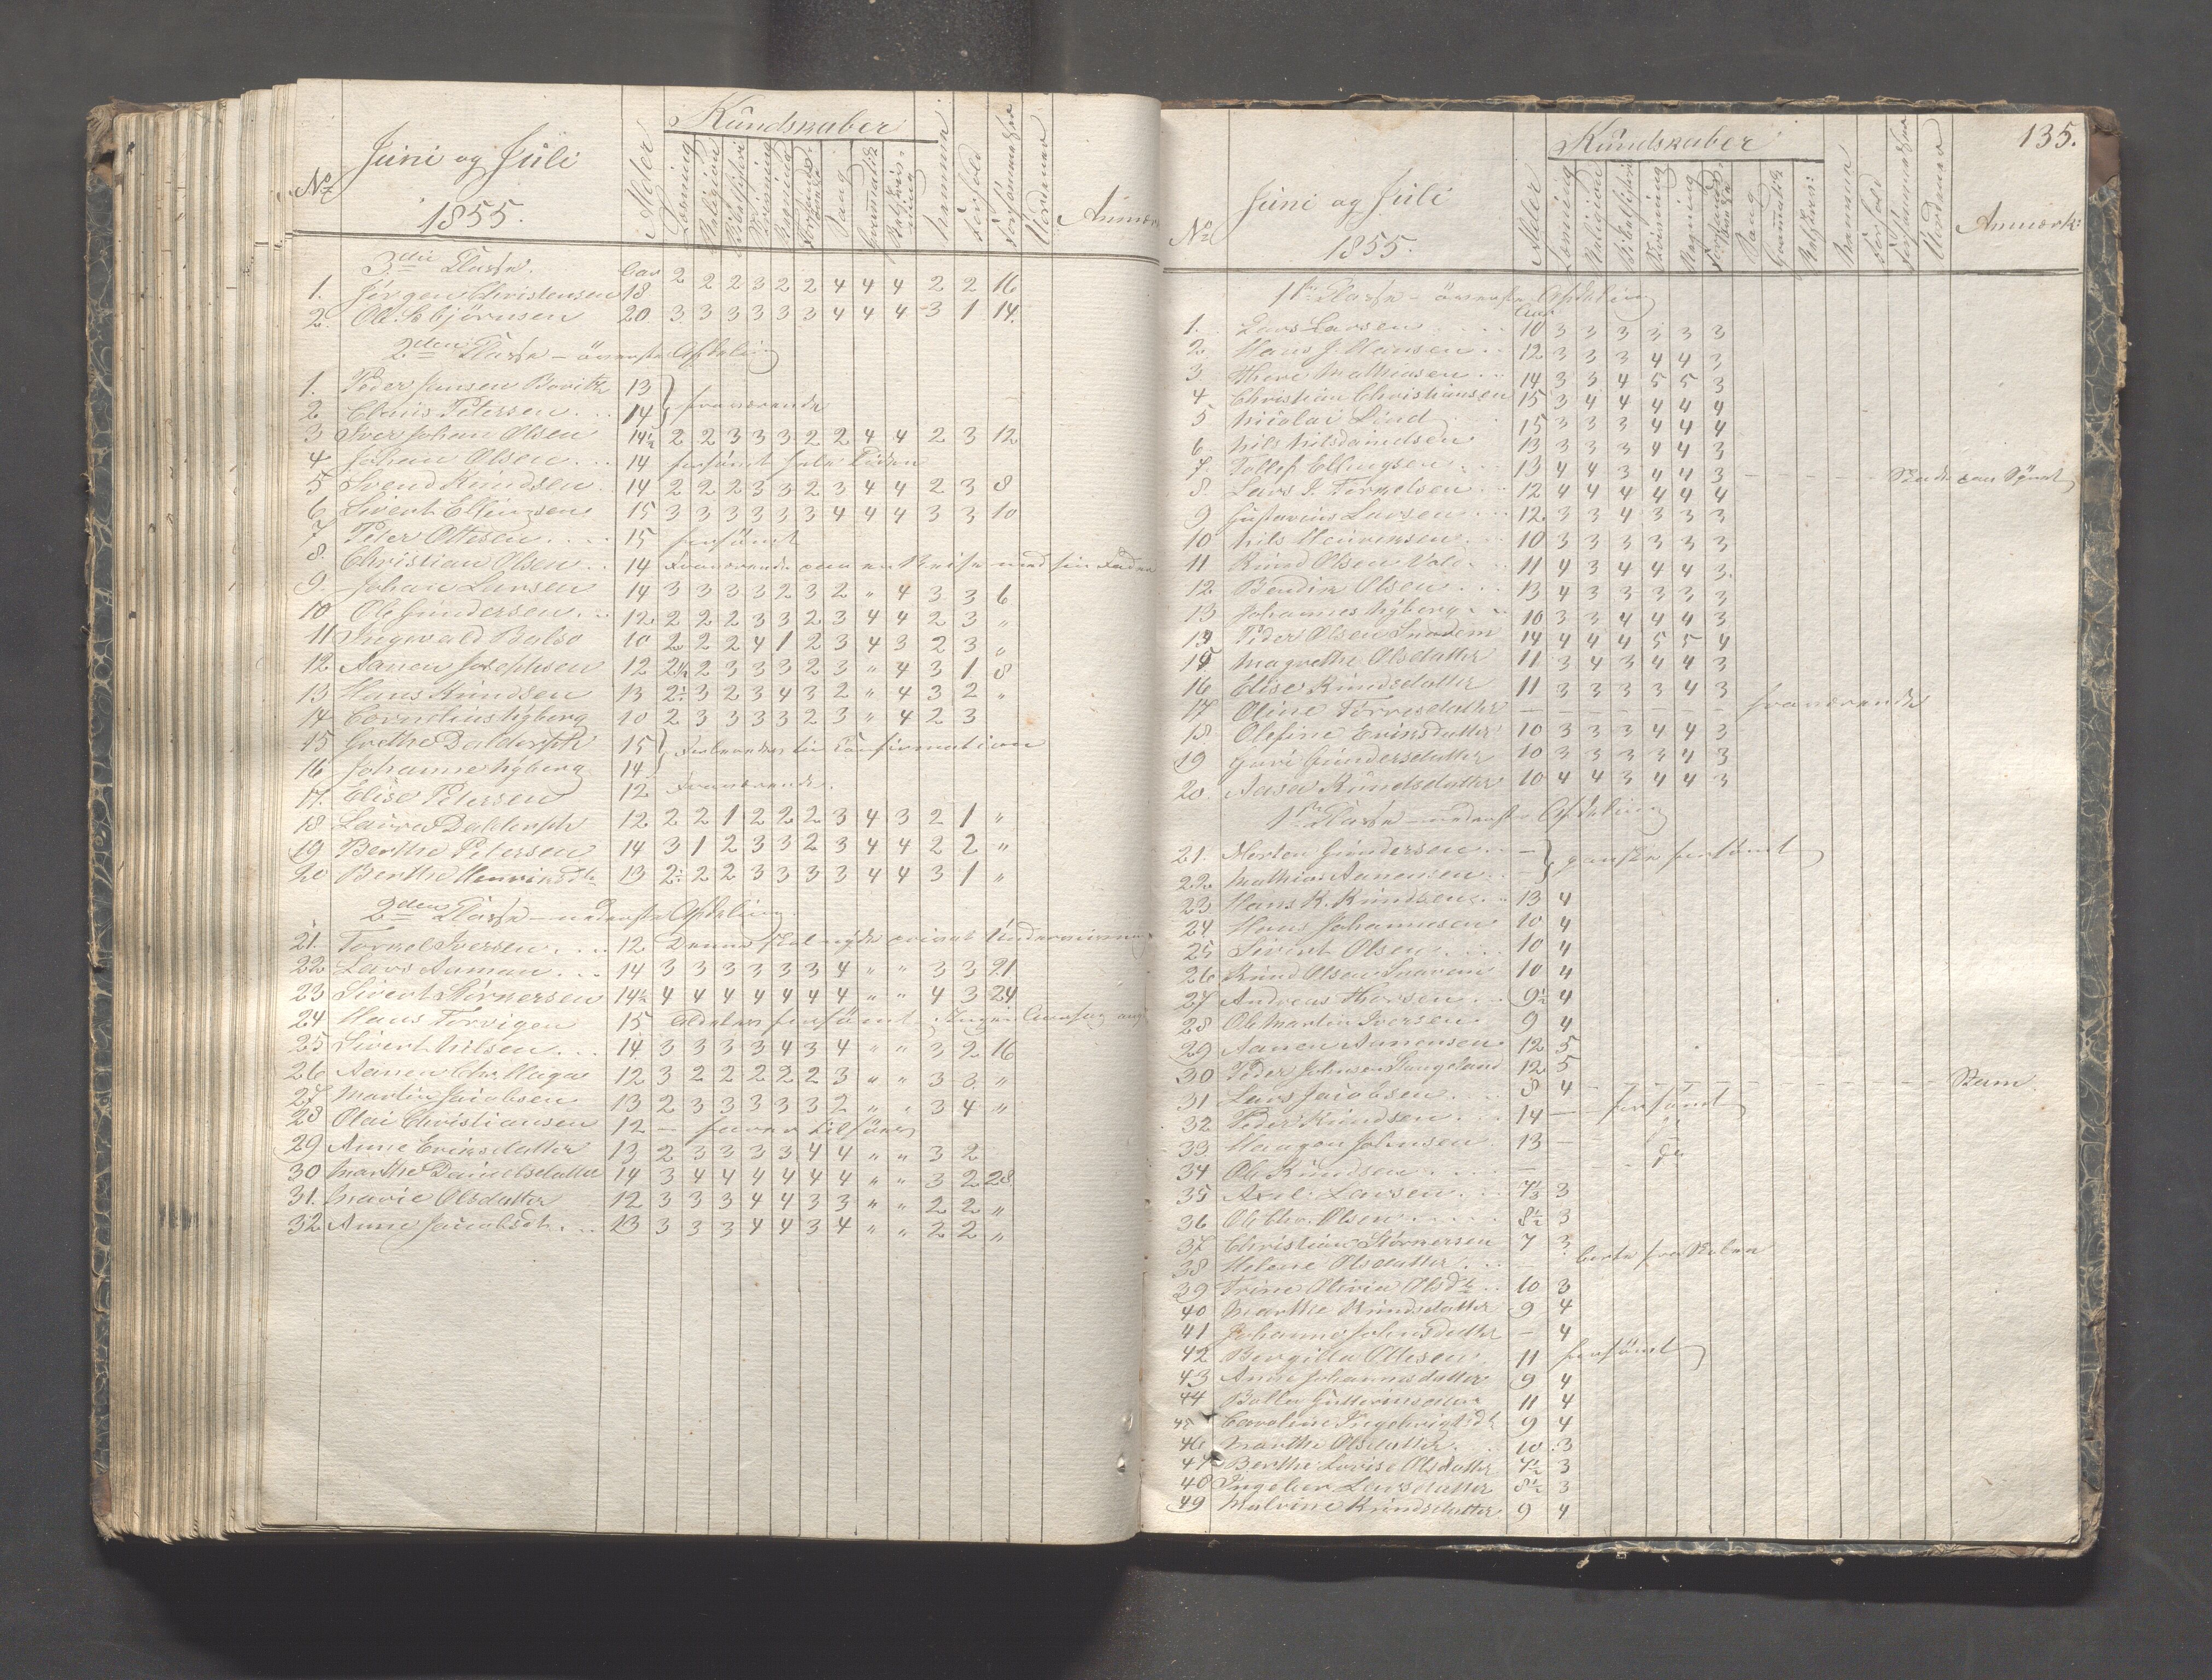 Juni og Juli
1855.
No
Alder
Kundskaber
Læsning
Religion
Skrivning
Regning
Sang
Gramatik
Retskriv-ning
Nemme
Forhold
Forsømmelser
Anmærk
3die Klasse.
Aar
1. Jörgen Christensen 18 2 2 2 3 2 2 4 4 4 2 2 16
2. Ole Asbjörnsen 20 3 3 3 3 3 3 4 4 4 3 1 14.
2den Klasse – överste Afdeling
1. Peder Jansen Bovitz 13
2 Claus Petersen 14 fraværende
3 Iver Johan Olsen 14½ 2 2 3 3 3 2 2 4 4 2 3 12
4 Johan Olsen 14 forsömt hele Tiden
5 Svend Knudsen 14 2 2 2 3 3 2 3 4 4 2 3 8
6 Sivert Ellingsen 15 3 3 3 3 3 3 4 4 4 3 3 10
7 Peter Ottesen 15 forsömt
8. Christian Olsen 14 Fraværende paa en Reise med sin Fader
9. Johan Larsen 14 3 3 3 3 2 3 2 " 4 3 3 6
10 Ole Gundersen 12 2 2 2 3 3 2 3 4 4 2 3 "
11 Ingvald Balso 10 2 2 2 4 1 2 3 4 3 2 3 "
12 Aanen Josephsen 12 2½ 2 3 3 3 2 3 " 4 3 1 8
13 Hans Knudsen 13 2½ 3 2 3 4 3 2 " 4 3 2 "
14 Cornelius Nyberg 10 2 3 3 3 3 2 3 " 4 2 3
15 Grethe Daldorph 15 Forberedes til Confirmation
16 Johanne Nyberg 14
17. Elise Petersen 12 Fraværende.
18 Laura Daldorph 12 2 2 1 2 2 2 3 4 3 2 1 "
19 Berthe Petersen 14 3 1 2 3 3 2 3 4 4 2 2 "
20 Berthe Henriksdtr 13 2½ 2 2 3 3 3 3 4 4 3 1 "
2den Klasse – nederste Afdeling.
21. Tormod Iversen 12 Denne skal nyde privat Underviisning
22 Lars Aaman 14 3 3 3 3 3 3 4 " " 3 3 21
23 Sivert Störkersen 14½ 4 4 4 4 4 4 4 " " 4 3 24
24 Hans Torvigen 15 Aldeles forsömt. Ingen Aarsag
25 Sivert Nilsen 14 3 3 3 3 4 3 4 " " 3 2 16
26 Aanen Chr. Haga 12 3 2 2 2 2 2 3 " " 3 3 "
27 Martin Jacobsen 13 2 3 3 3 3 3 2 " " 3 4 "
28 Olai Christiansen 12 – faren tilsöes
29 Anne Eriksdatter 13 2 3 3 3 3 4 4 " " 3 2
30 Marthe Danielsdatter 14 3 4 4 4 4 4 4 " " 3 2 28
31. Marie Olsdatter 12 3 3 3 4 4 3 3 " " 2 2 "
32 Anne Jacobsdtr. 13 3 3 3 4 4 3 4 " " 2 2 "
135.
Juni og Juli
1855.
No
Alder
Kundskaber
Læsning
Religion
Skrivning
Regning
Sang
Gramatik
Retskriv:
Nemme
Forhold
Forsömmelser
Anmærk:
1ste Klasse – överste Afdeling
Aar
1. Lars Larsen 10 3 3 3 3 3 3
2. Hans J. Hansen 12 3 3 3 4 4 3
3. Thore Mathiesen 14 3 3 4 5 5 3
4 Christian Christiansen 15 3 4 4 4 4 4
5 Nicolai Lind 15 3 3 3 4 4 4
6. Nils Nilsdaindsen 13 3 3 3 4 4 3
7. Tollef Ellingsen 13 4 4 3 4 4 3
8. Lars J. Törkelsen 12 4 4 4 4 4 4
9 Gustavius Larsen 12 3 3 4 3 3 3
10 Nils Henriksen 10 3 3 3 3 3 3
11 Knud Olsen Vold 11 4 3 4 4 4 3.
12 Bendix Olsen 13 4 3 3 3 3 3
13 Johannes Nyberg 10 3 3 4 4 4 3
14 Peder Olsen 14 4 4 4 5 5 4
15 Magrethe Olsdatter 11 3 4 3 4 4 3
16 Elise Knudsdatter 11 3 3 3 3 4 3
17 Oline Törresdatter – – – – – – – fraværende
18 Olefine Eriksdatter 10 3 3 3 4 4 3
19 Guri Gundersdatter 10 3 3 3 3 4 3
20. Aasa Knudsdatter 10 4 4 3 4 4 3
1ste Klasse – nederste Afdeling
21. Morten Gundersen – ganske forsömt
22. Mathias Aanensen –
23 Hans K. Knudsen 13 4
24 Hans Johannesen 10 4
25 Sivert Olsen 10 4
26 Knud Olsen 10 4
27 Andreas Thorsen 9½ 4
28 Ole Martin Iversen 9 4
29 Aanen Aanensen 12 5
30 Peder Johnsen Haugeland 12 5
31 Lars Jacobsen 8 4
32 Peder Knudsen 14 – forsömt
33 Haagon Johnsen 13 –
34 Ole Knudsen – do
35 Axel Larsen 7½ 3
36 Ole Chr. Olsen 8½ 3
37 Christian Störkersen 7 3
38 Helene Olsdatter – borte fra Skolen
39 Trine Olivia Olsdtr 10 3
40 Marthe Knudsdatter 9 4
41 Johanne Johnsdatter – 4
42 Bergitta Ottesen 11 forsömt
43 Anne Johannesdatter 9 4
44 11 4
45 Caroline Ingebrigtsdt 9 4
46 Marthe Olsdatter 10 3
47 Berthe Lovise Olsdatter 7½ 3
48 Ingebor Larsdatter 8½ 3
49 Malvine Knudsdatter 9 4